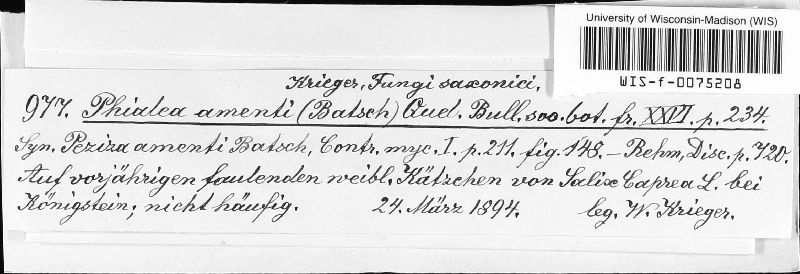 University of Wisconsin-Madison (WIS)
WIS-f-0075208
Krieger, Fungi saxonici,
977. Phialea amenti (Batsch) Quel. Bull. soc. bot. fr. XXVI. p. 234.
Syn. Peziza amenti Batsch, Contr. myc. I. p. 211. fig. 148. – Rehm, Disc. p. 720.
Auf vorjährigen faulenden weibl. Kätzchen von Salix Caprea L. bei
Königstein; nicht häufig. 24. März 1894. leg. W. Krieger.